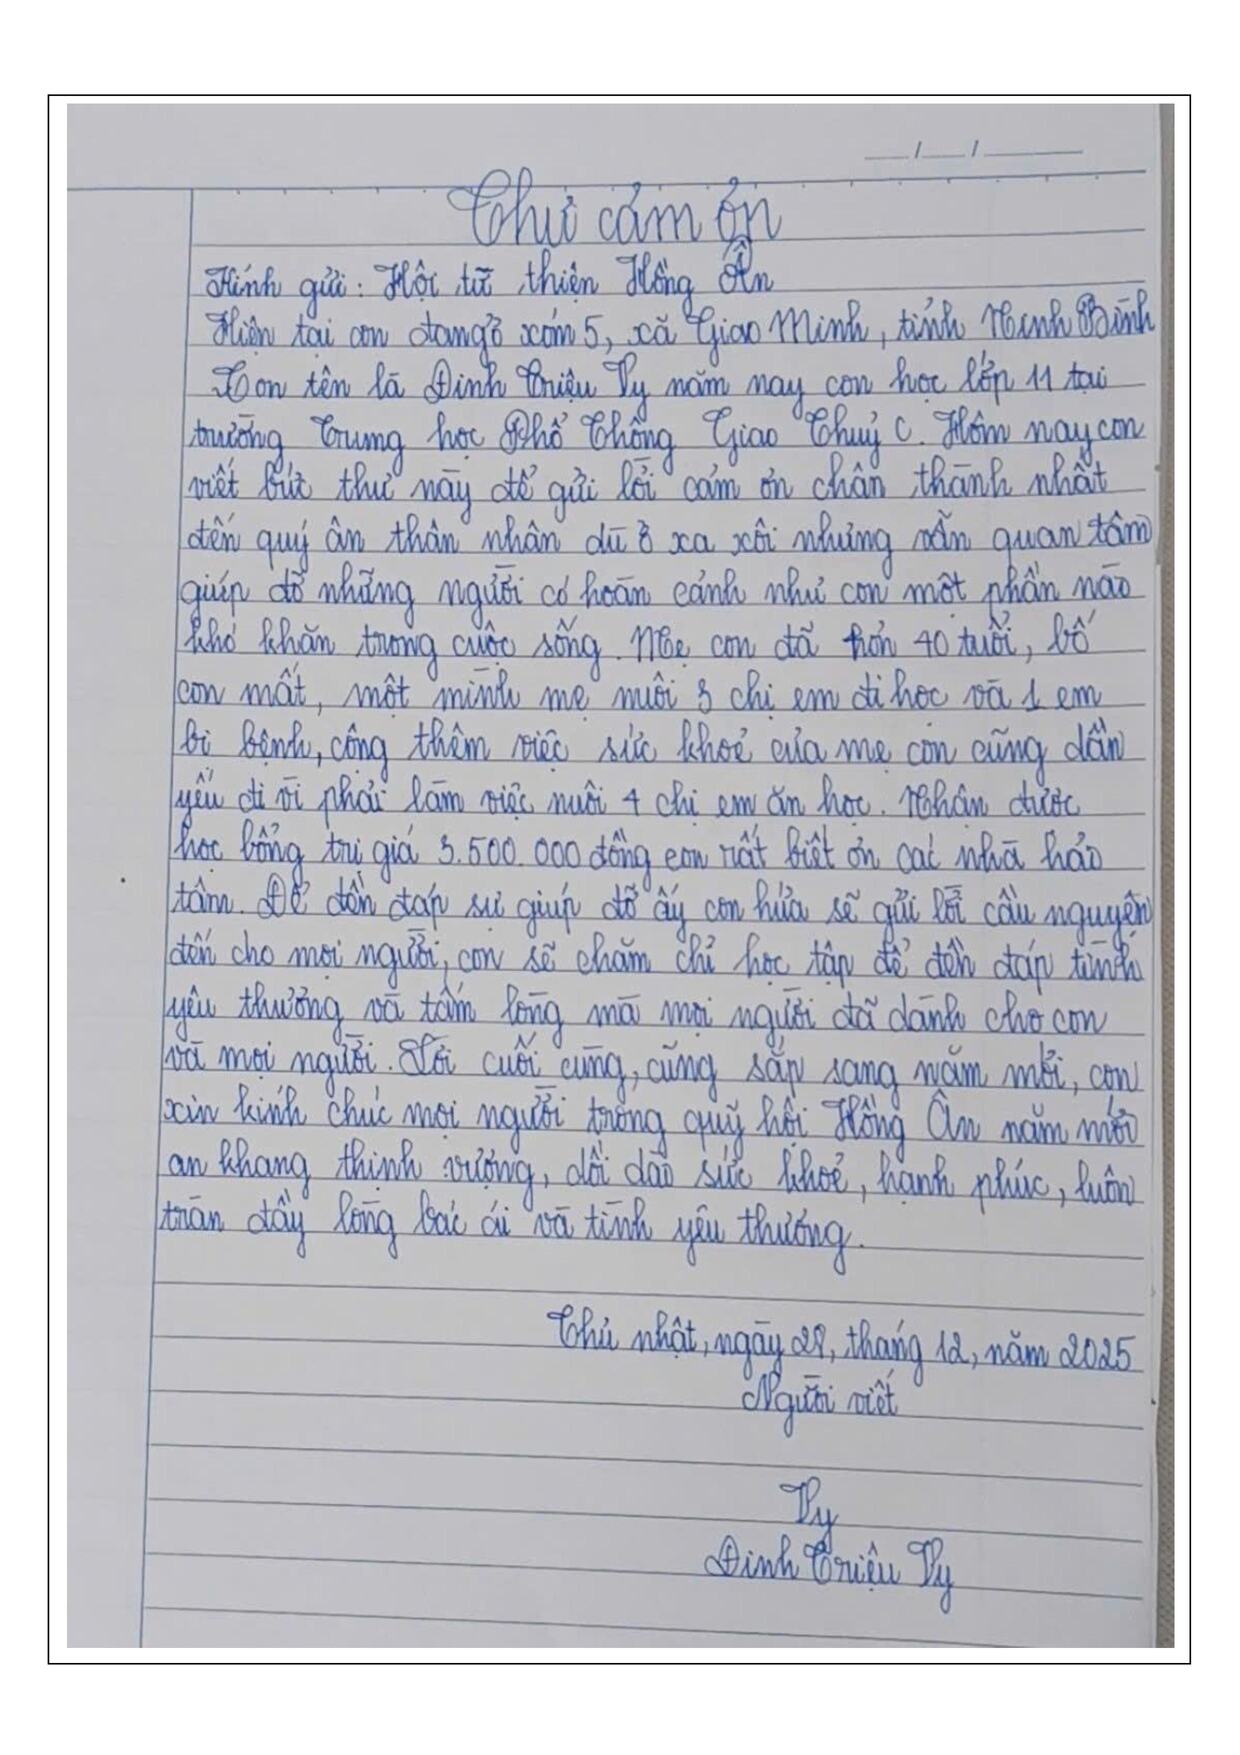 Thư cảm ơn
Kính gửi: Hội từ thiện Hồng Ân
Hiện tại con đang ở xóm 5, xã Giao Minh, tỉnh Ninh Bình
Con tên là Đinh Triệu Vy năm nay con học lớp 11 tại
trường Trung học Phổ Thông Giao Thuỷ C. Hôm nay con
viết bức thư này để gửi lời cảm ơn chân thành nhất
đến quý ân thân nhân dù ở xa xôi nhưng vẫn quan tâm
giúp đỡ những người có hoàn cảnh như con một phần nào
khó khăn trong cuộc sống. Mẹ con đã hơn 40 tuổi, bố
con mất, một mình mẹ nuôi 3 chị em đi học và 1 em
bị bệnh, cộng thêm việc sức khoẻ của mẹ con cũng dần
yếu đi vì phải làm việc nuôi 4 chị em ăn học. Nhận được
học bổng trị giá 3.500.000 đồng con rất biết ơn các nhà hảo
tâm. Để đền đáp sự giúp đỡ ấy con hứa sẽ gửi lời cầu nguyện
đến cho mọi người, con sẽ chăm chỉ học tập để đền đáp tình
yêu thương và tấm lòng mà mọi người đã dành cho con
và mọi người. Lời cuối cùng, cũng sắp sang năm mới, con
xin kính chúc mọi người trong quỹ hội Hồng Ân năm mới
an khang thịnh vượng, dồi dào sức khoẻ, hạnh phúc, luôn
tràn đầy lòng bác ái và tình yêu thương.
Chủ nhật, ngày 28, tháng 12, năm 2025
Người viết
Vy
Đinh Triệu Vy